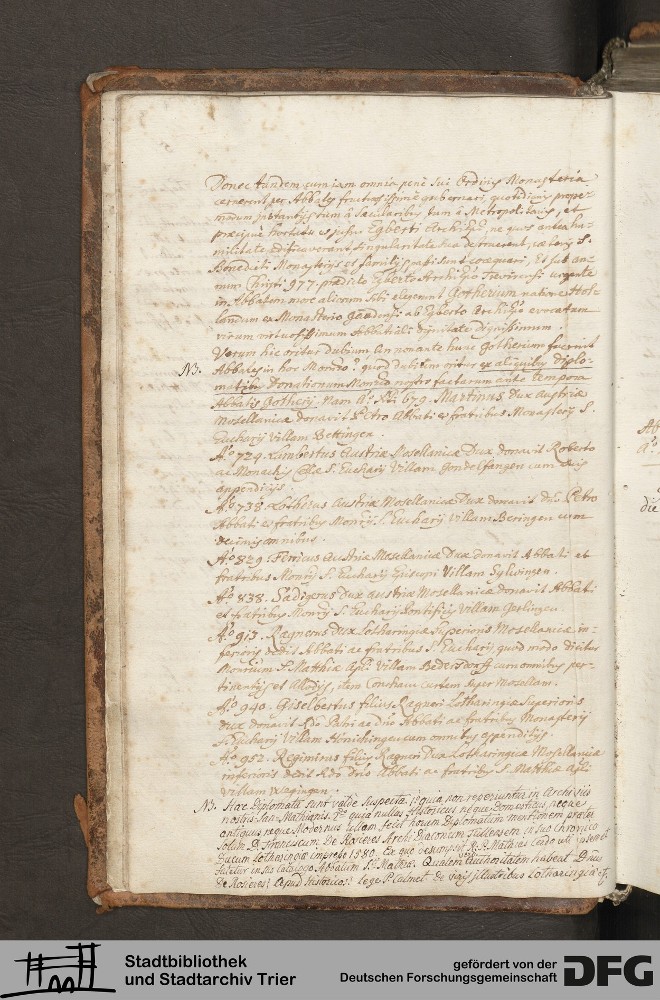 Donec tandem cum iam omnia penè sui Ordinis Monasteria
cernerent per Abbates fructuosissimè gubernari, quotidianis
instantijs tum à Sæcularibus tum à Metropolitanis, et
præcipuè hortatu et jussu Egberti Archiepi, ne quos antea hu-
militate ædificaverant, singularitate sua destruerent, cæteris S.
Benedicti Monasterijs et similes coæquari, Et sub an-
num Christi 977. prædicto Egberto Archiepo Trevirensi urgente
in Abbatem more aliorum sibi elegerunt Gotherum natione Hol-
landum ex Monasterio Gandensi ab Egberto Archiepo evocatum
virum virtuosissimum Abbatiali dignitate dignissimum.
Verum hic oritur Dubium An non ante hunc Gotherum fuerint
NB. Abbates in hoc Monrio: quod Dubium oritur ex aliquibus diplo-
matibus Donationum Monrio nostro factarum ante tempora
Abbatis Gotheri. Nam Aº. Xti 679. Martinus Dux Austriæ
Mosellanicæ donavit Petro Abbati et fratribus Monasterij S.
Eucharij Villam Bettingen.
Aº. 724. Lambertus Austriæ Mosellanicæ Dux donavit Roberto
ac Monachis S. Eucharij Villam Gondelfangen cum suis
appendicijs.
Aº. 738. Lotherus Austriæ Mosellanicæ Dux donavit Petro
Abbati et fratribus Monrij S. Eucharij Villam Beringen cum
decimis omnibus.
Aº. 829. Ferricus Austriæ Mosellanicæ Dux donavit Abbati et
fratribus Monrij S. Eucharij Episcopi Villam Sylvingen.
Aº. 838. Sadigerus Dux Austriæ Mosellanicæ donavit Abbati
et fratribus Monrij S. Eucharij Pontificis Villam Gerlingen.
Aº. 913. Ragnerus Dux Lotharingiæ Superioris Mosellanicæ in-
ferioris dedit Abbati ac fratribus S. Eucharij quod modo dicitur
Monrium S. Matthiæ Apli Villam Bedersdorff cum omnibus per-
tinentijs et Allodijs, item Concham curtem super Mosellam.
Aº. 940. Giselbertus filius Ragneri Lotharingiæ Superioris
dux donavit Rdo Patri ac dno Abbati ac fratribus Monasterij
S. Eucharij Villam Hinichingen cum omnibus appenditijs.
Aº. 952. Regimirus filius Ragneri Dux Lotharingiæ Mosellanicæ
inferioris dedit Rdo Dno Abbati ac fratribus S. Matthiæ Apli
Villam Wegingen.
NB. Hæc Diplomata sunt valde suspecta, quia non reperiuntur in Archivis
nostris San-Mathianis. quia nullus Historicus neque Domesticus neque
antiquus neque Modernus ullam fecit horum Diplomatum mentionem præter
solum D. Franciscum De Rosieres Archi Diaconum Tullensem in suo Chronico
Ducum Lotharingiæ impresso 1580. Ex quo resumpsit
in suo Catalogo Abbatum S. Mathiæ. Qualem Authoritatem habeat Dnus
De Rosieres Apud Historicos? Lege P. Calmet de viris illustribus Lotharingiæ
Ab
Aº.
die
Stadtbibliothek
und Stadtarchiv Trier
gefördert von der
Deutschen Forschungsgemeinschaft
DFG